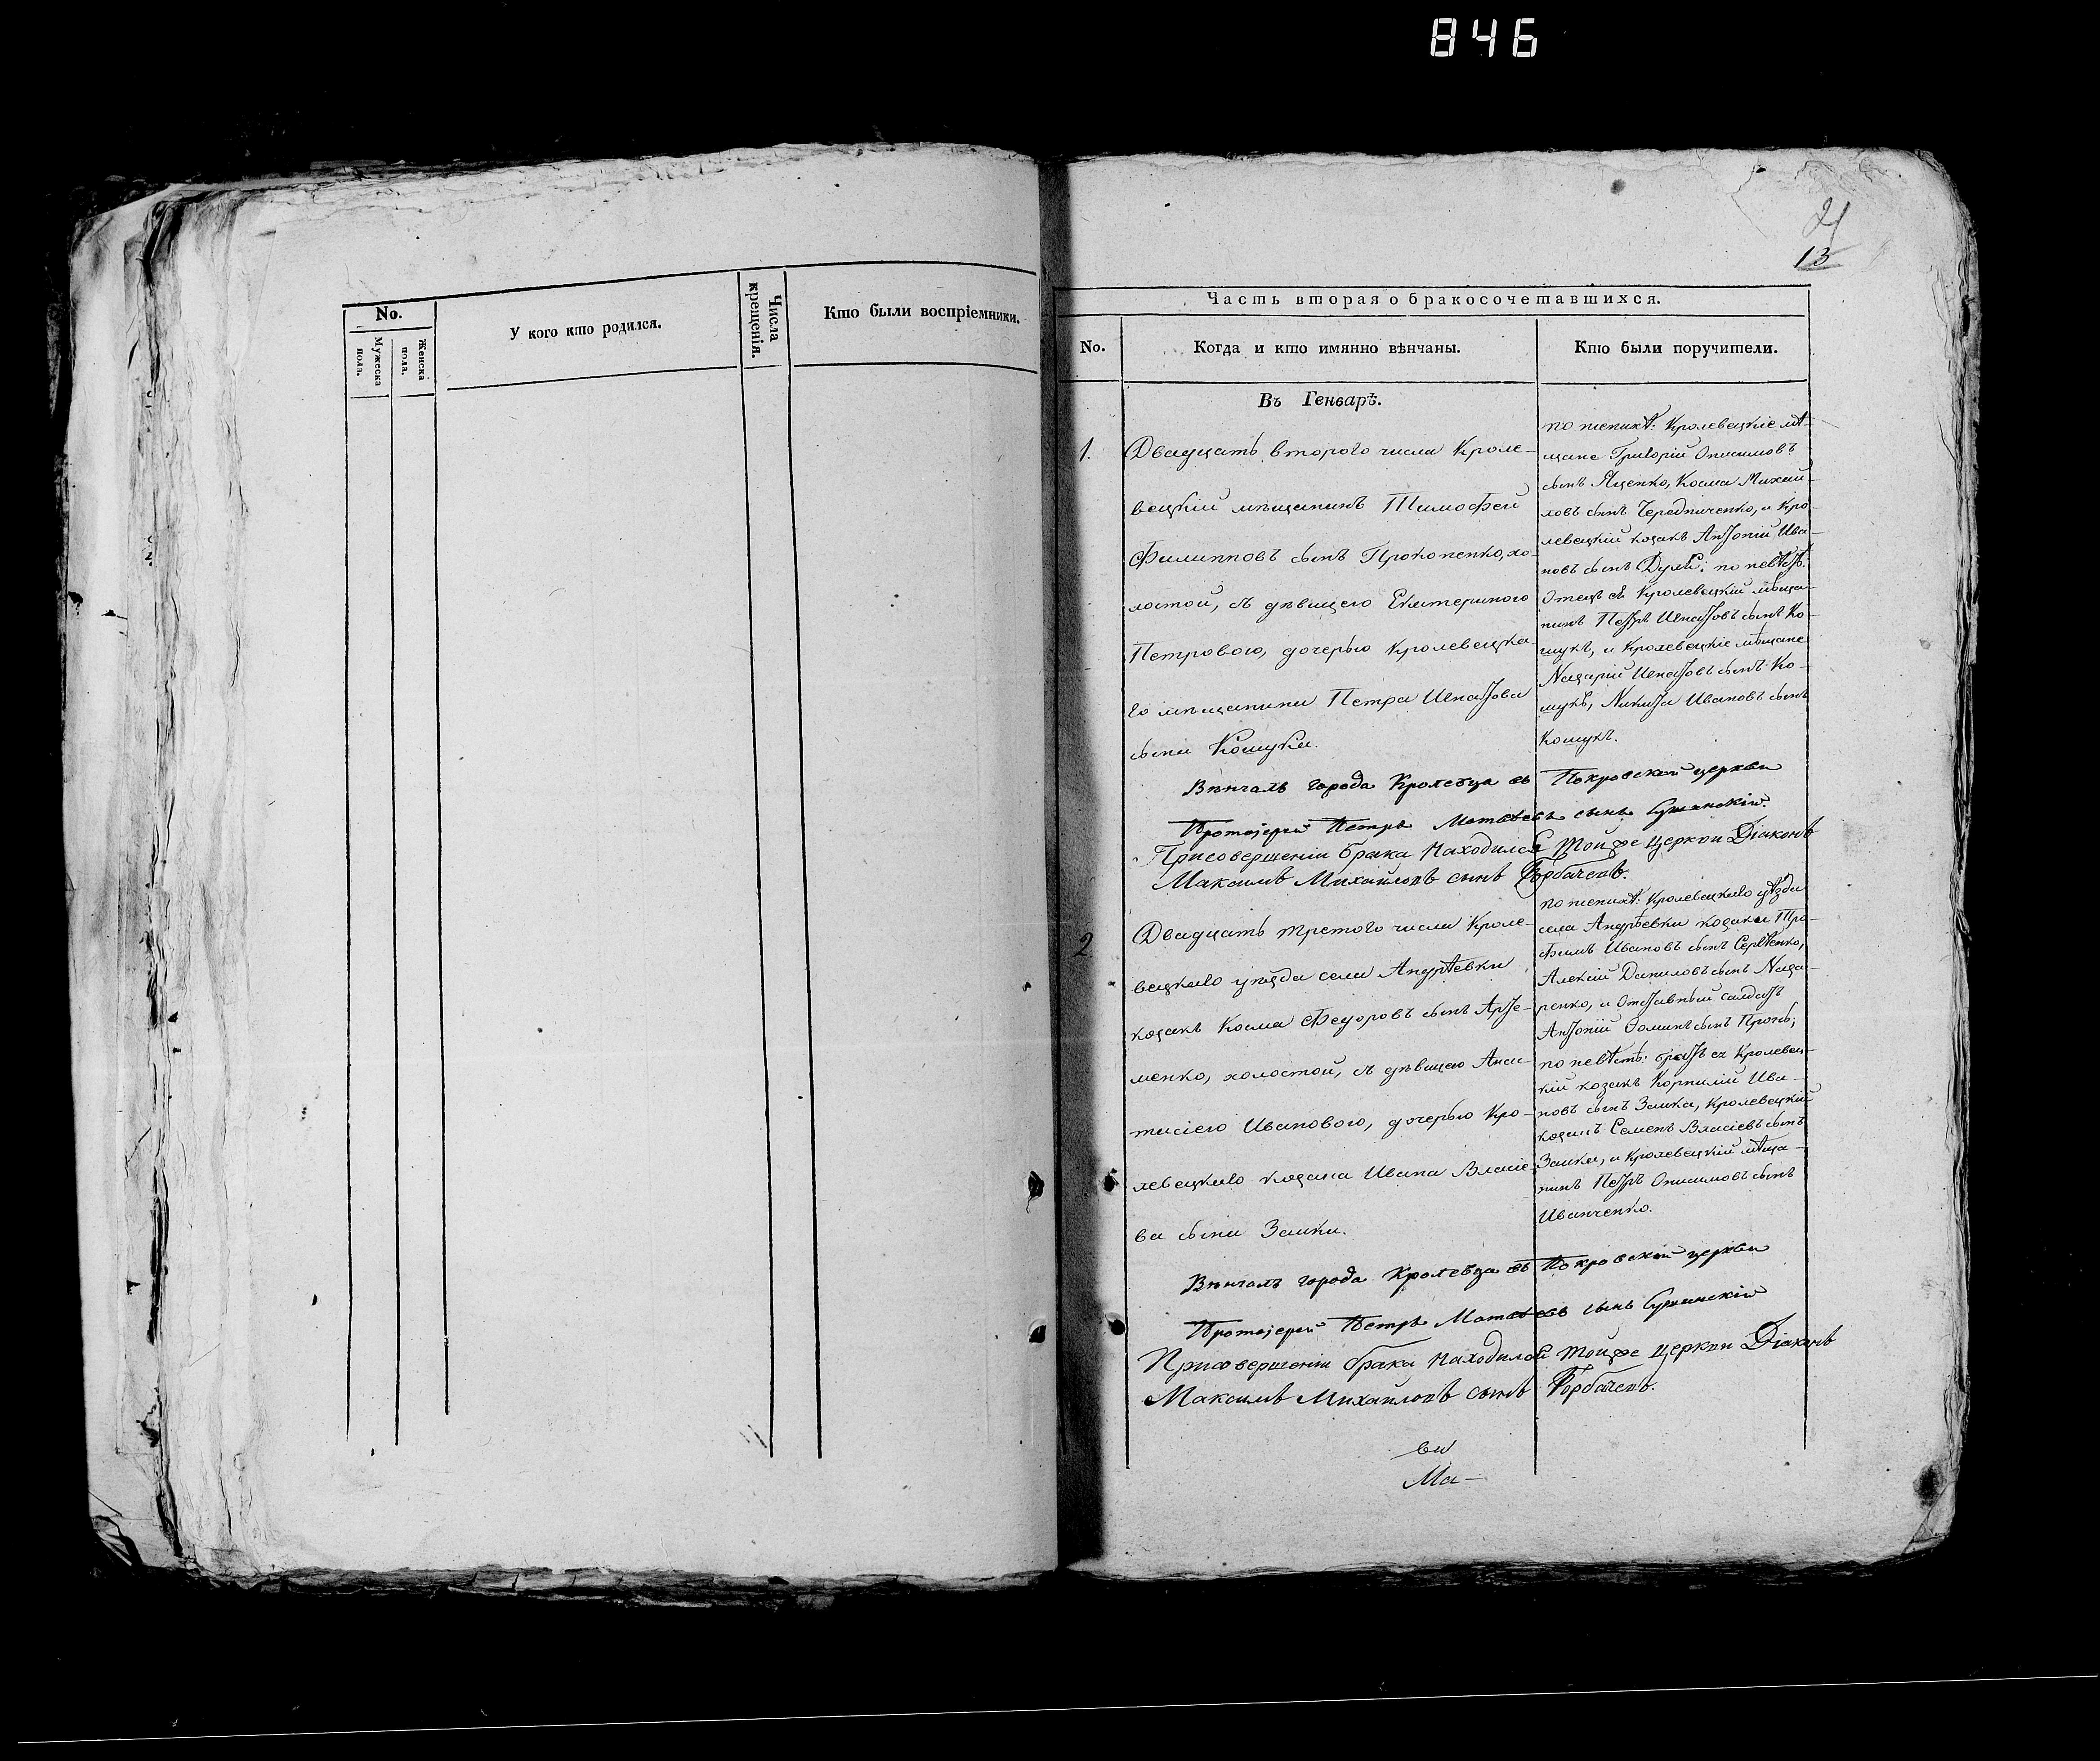 846
21
13
No.
Мужеска пола.
Женска пола.
У кого кто родился.
Числа крещенія.
Кто были воспріемники.
Часть вторая о бракосочетавшихся.
No.
Когда и кто имянно вѣнчаны.
Кто были поручители.
Въ Генварѣ.
1.
Двадцать второго числа Кроле-
вецкій мѣщанинъ Тимофей
Филипповъ сынъ Прокопенко, хо-
лостой, съ дѣвицею Екатериною
Петровою, дочерью Кролевецка-
го мѣщанина Петра Игнатова
сына Кошука.
по женихѣ: Кролевецкіе мѣ-
щане Григорій Онисимовъ
сынъ Яценко, Косма Михай-
ловъ сынъ Чередниченко, и Кро-
левецкій козакъ Антоній Ива-
новъ сынъ по невѣстѣ:
Отецъ ея Кролевецкій мѣща-
нинъ Петръ Игнатовъ сынъ Ко-
шукъ, и Кролевецкіе мѣщане
Назарій Игнатовъ сынъ Ко-
шукъ, Никита Ивановъ сынъ
Кошукъ.
Вѣнчалъ города Кролевца въ Покровской церкви
Протоіерей Петръ Матвѣевъ сынъ
Присовершеніи брака находился тойже церкви Діаконъ
Максимъ Михайловъ сынъ Горбачевъ.
2.
Двадцать третого числа Кроле-
вецкаго уѣзда села Андрѣевки
козакъ Косма Федоровъ сынъ Арте-
менко, холостой, съ дѣвицею Анас-
тасіею Ивановою, дочерью Кро-
левецкаго козака Ивана Власіе-
ва сына Заики.
по женихѣ: Кролевецкаго уѣзда
села Андрѣевки козаки Тро-
фимъ Ивановъ сынъ Сергѣенко,
Алексій Даниловъ сынъ Наза-
ренко, и Отставный салдатъ
Антоній Ѳоминъ сынъ Пронь;
по невѣстѣ: братъ ея Кролевец-
кій козакъ Корнилій Ива-
новъ сынъ Заика, Кролевецкій
козакъ Семенъ Власіевъ сынъ
Заика, и Кролевецкій мѣща-
нинъ Петръ Онисимовъ сынъ
Иванченко.
Вѣнчалъ города Кролевца въ Покровской церкви
Протоіерей Петръ Матвѣевъ сынъ
Присовершеніи брака находился тойже церкви Діаконъ
Максимъ Михайловъ сынъ Горбачевъ.
Ма-